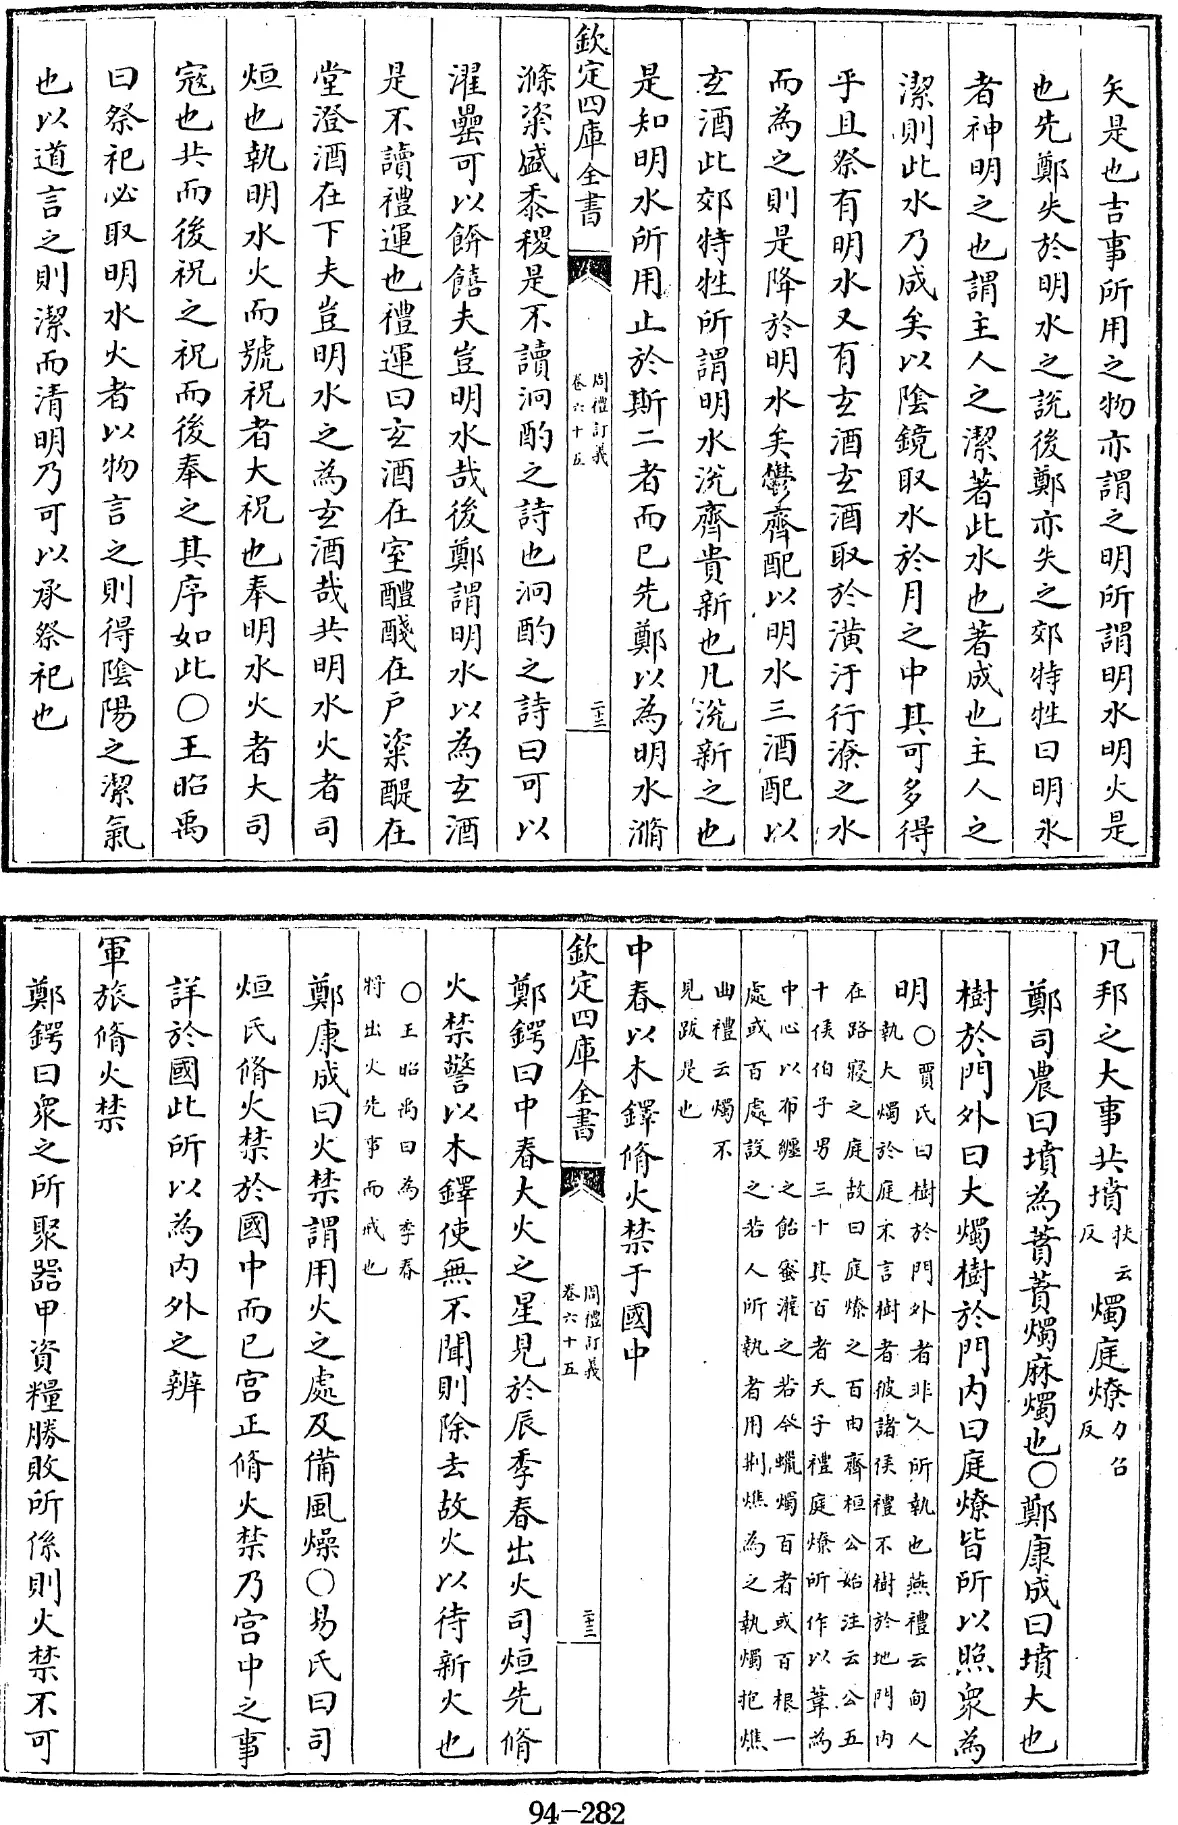 矣是也吉事所用之物亦謂之明所謂明水明火是
也先鄭失於明水之説後鄭亦失之郊特牲曰明水
者神明之也謂主人之潔著此水也著成也主人之
潔則此水乃成矣以陰鏡取水於月之中其可多得
乎且祭有明水又有玄酒玄酒取於潢汙行潦之水
而為之則是降於明水矣鬱齊配以明水三酒配以
玄酒此郊特牲所謂明水涚齊貴新也凡涚新之也
是知明水所用止於斯二者而已先鄭以為明水滫
欽定四庫全書
周禮訂義
卷六十五
二十二
滌粢盛黍稷是不讀泂酌之詩也泂酌之詩曰可以
濯罍可以餴饎夫豈明水哉後鄭謂明水以為玄酒
是不讀禮運也禮運曰玄酒在室醴醆在戸粢醍在
堂澄酒在下夫豈明水之為玄酒哉共明水火者司
烜也執明水火而號祝者大祝也奉明水火者大司
寇也共而後祝之祝而後奉之其序如此○王昭禹
曰祭祀必取明水火者以物言之則得陰陽之潔氣
也以道言之則潔而清明乃可以承祭祀也
凡邦之大事共墳扶云反燭庭燎力召反
鄭司農曰墳為蕡蕡燭麻燭也○鄭康成曰墳大也
樹於門外曰大燭樹於門内曰庭燎皆所以照衆為
明○賈氏曰樹於門外者非人所執也燕禮云甸人
執大燭於庭不言樹者彼諸侯禮不樹於地門内
在路寢之庭故曰庭燎之百由齊桓公始注云公五
十侯伯子男三十其百者天子禮庭燎所作以葦為
中心以布纒之飴蜜灌之若今蠟燭百者或百根一
處或百處設之若人所執者用荆燋為之執燭抱燋
曲禮云燭不
見跋是也
中春以木鐸脩火禁于國中
欽定四庫全書
周禮訂義
卷六十五
二十三
鄭鍔曰中春大火之星見於辰季春出火司烜先脩
火禁警以木鐸使無不聞則除去故火以待新火也
○王昭禹曰為季春
將出火先事而戒也
鄭康成曰火禁謂用火之處及備風燥○易氏曰司
烜氏脩火禁於國中而已宫正脩火禁乃宫中之事
詳於國此所以為内外之辨
軍旅脩火禁
鄭鍔曰衆之所聚器甲資糧勝敗所係則火禁不可
94-282